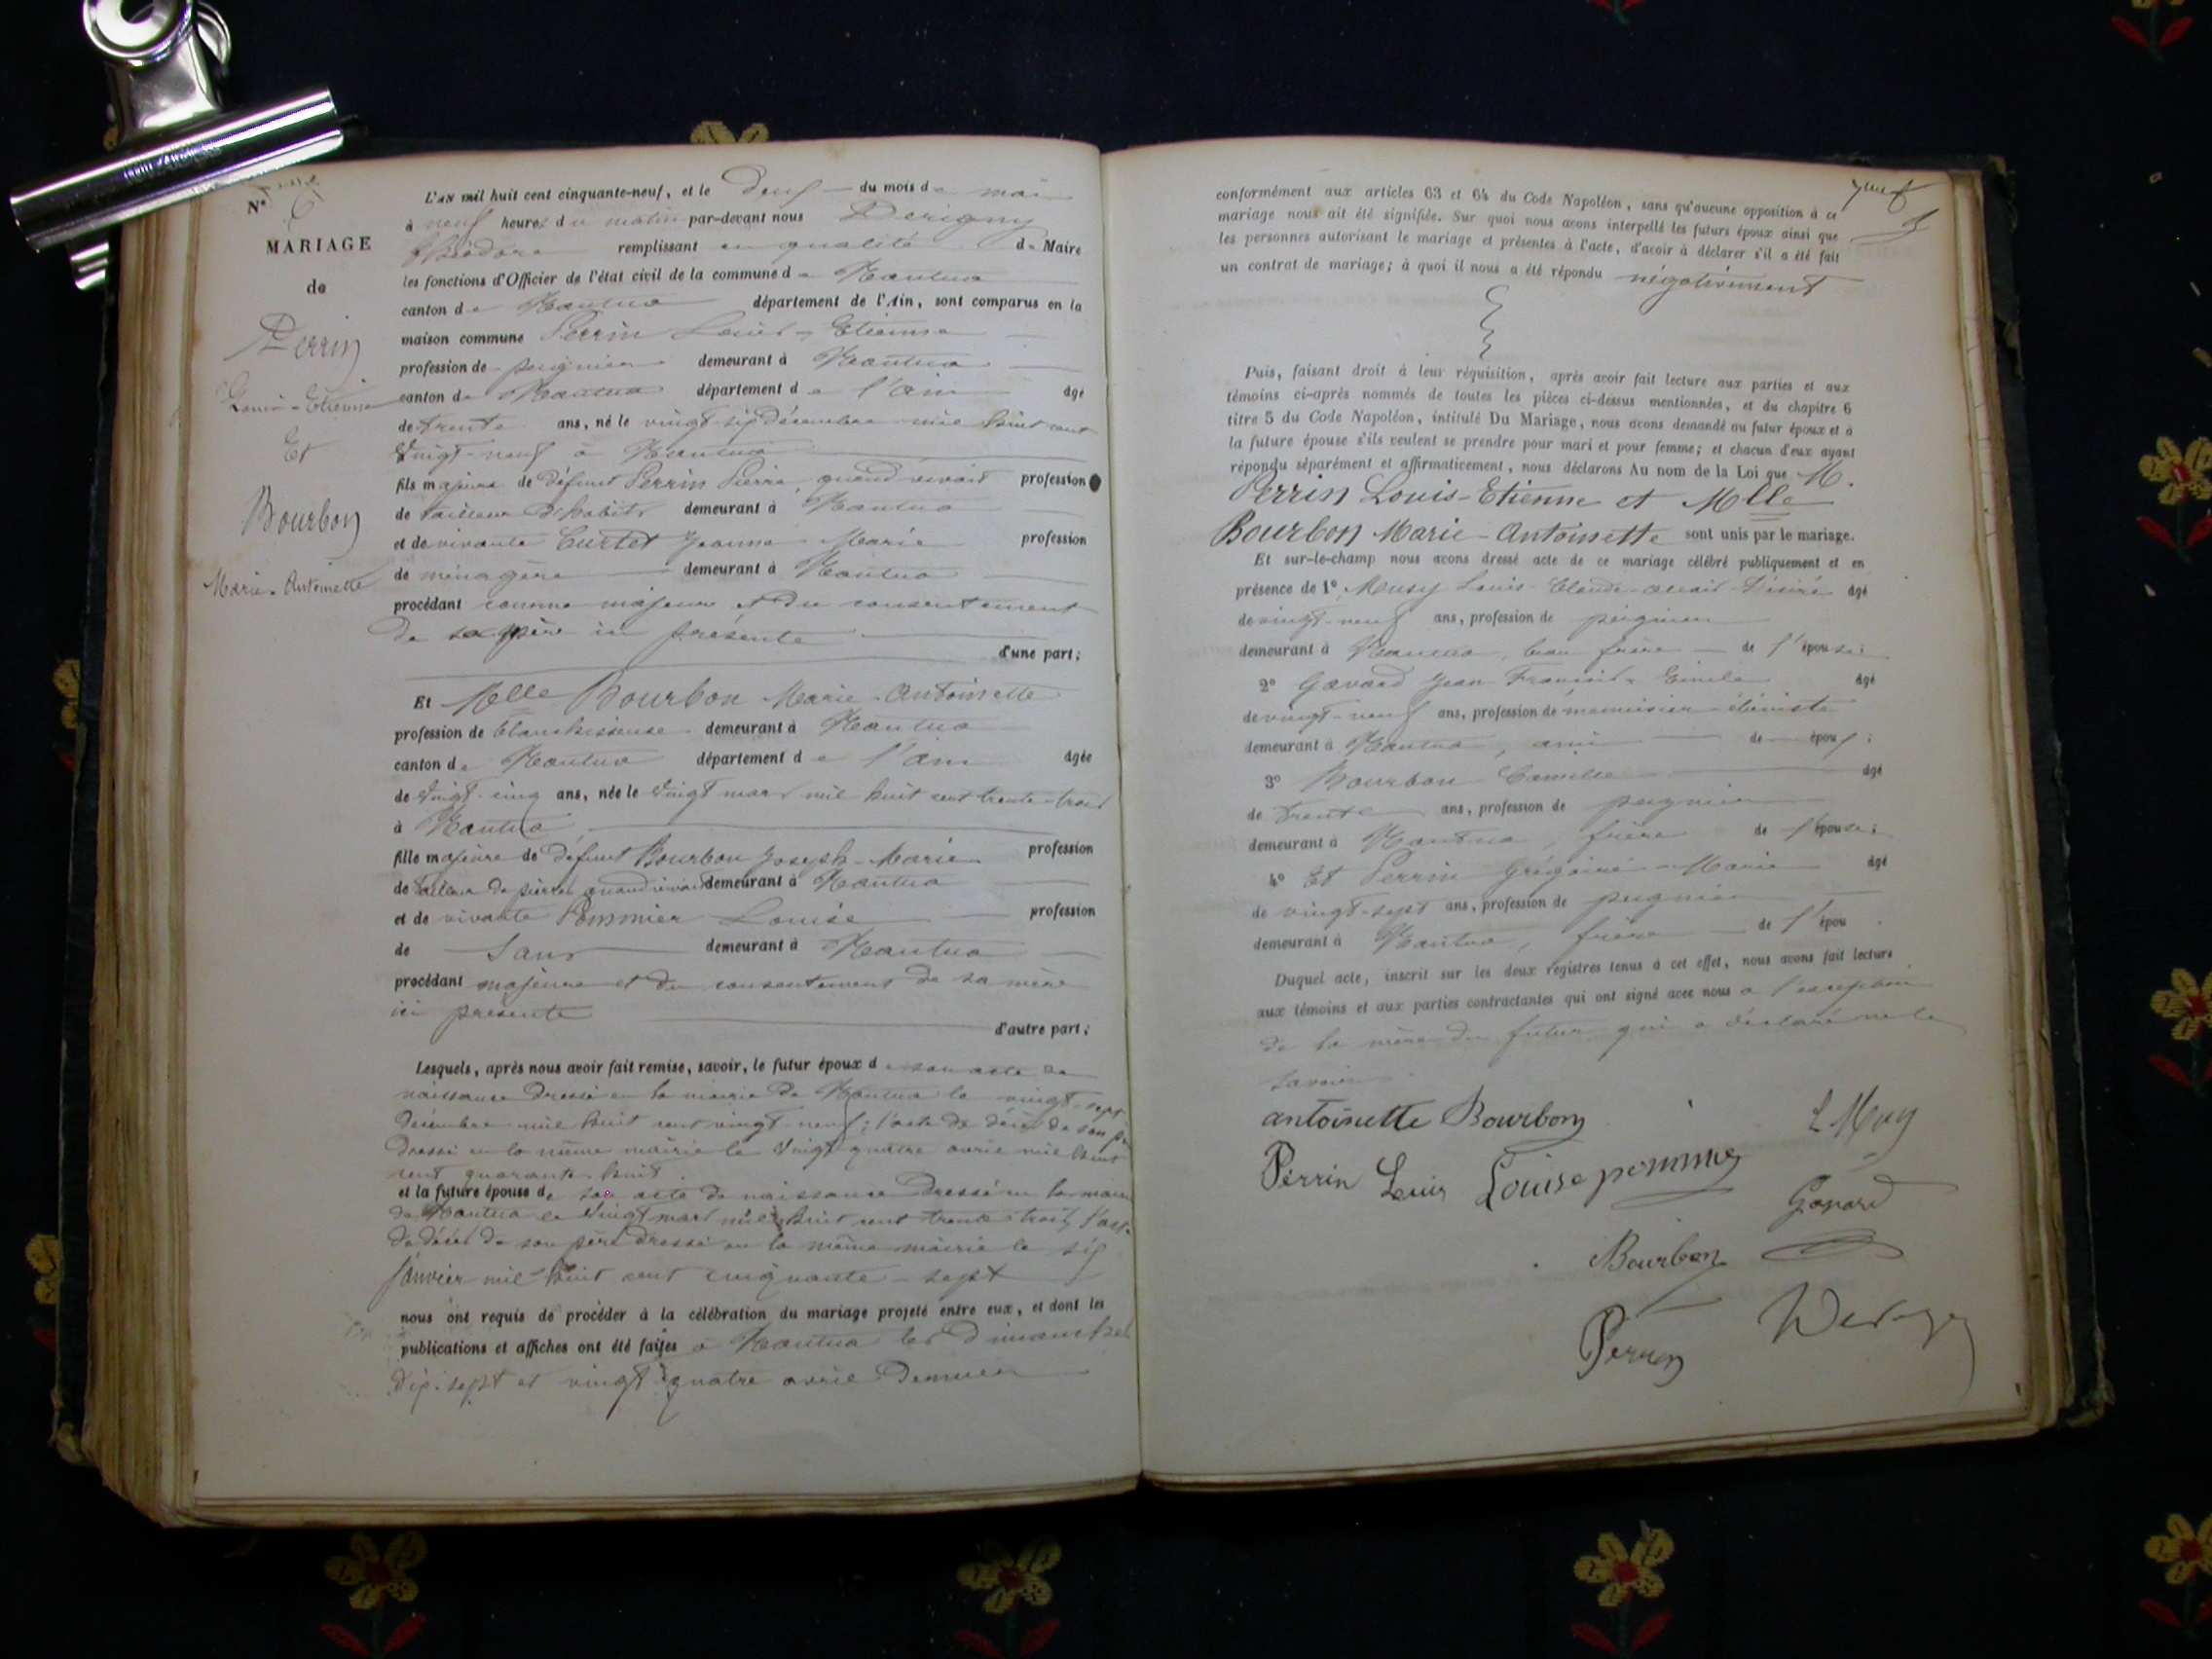 N° 6
MARIAGE
de
Perrin
Louis-Etienne
Et
Bourbon
Marie-Antoinette
L'an mil huit cent cinquante-neuf, et le deux du mois de mai
à neuf heures du matin par-devant nous Derigny
Théodore remplissant en qualité de Maire
les fonctions d'Officier de l'état civil de la commune de Nantua
canton de Nantua département de l'Ain, sont comparus en la
maison commune Perrin Louis-Etienne
profession de peignier demeurant à Nantua
canton de Nantua département de l'ain âgé
de trente ans, né le vingt-six décembre mil huit cent
vingt-neuf à Nantua
fils majeur de défunt Perrin Pierre, quand vivait profession
de tailleur d'habits demeurant à Nantua
et de vivante Curtet Jeanne-Marie profession
de ménagère demeurant à Nantua
procédant comme majeur et du consentement
de sa mère ici présente
d'une part;
Et Melle Bourbon Marie-Antoinette
profession de blanchisseuse demeurant à Nantua
canton de Nantua département de l'ain âgée
de vingt-cinq ans, née le vingt mars mil huit cent trente-trois
à Nantua
fille majeure de défunt Bourbon Joseph-Marie profession
de tailleur de pierres quand vivait demeurant à Nantua
et de vivante Pommier Louise profession
de Sans demeurant à Nantua
procédant majeure et du consentement de sa mère
ici présente
d'autre part;
Lesquels, après nous avoir fait remise, savoir, le futur époux de son acte de
naissance dressé en la mairie de Nantua le vingt-sept
décembre mil huit cent vingt-neuf; l'acte de décès de son père
dressé en la même mairie le vingt quatre avril mil huit
cent quarante-huit
et la future épouse de son acte de naissance dressé en la mairie
de Nantua le vingt mars mil huit cent trente trois, l'acte
de décès de son père dressé en la même mairie le six
janvier mil huit cent cinquante-sept
nous ont requis de procéder à la célébration du mariage projeté entre eux, et dont les
publications et affiches ont été faites à Nantua les dimanches
dix-sept et vingt quatre avril dernier
conformément aux articles 63 et 64 du Code Napoléon, sans qu'aucune opposition à ce
mariage nous ait été signifiée. Sur quoi nous avons interpellé les futurs époux ainsi que
les personnes autorisant le mariage et présentes à l'acte, d'avoir à déclarer s'il a été fait
un contrat de mariage; à quoi il nous a été répondu négativement
Puis, faisant droit à leur réquisition, après avoir fait lecture aux parties et aux
témoins ci-après nommés de toutes les pièces ci-dessus mentionnées, et du chapitre 6
titre 5 du Code Napoléon, intitulé Du Mariage, nous avons demandé au futur époux et à
la future épouse s'ils veulent se prendre pour mari et pour femme; et chacun d'eux ayant
répondu séparément et affirmativement, nous déclarons Au nom de la Loi que M.
Perrin Louis-Etienne et Melle
Bourbon Marie-Antoinette sont unis par le mariage.
Et sur-le-champ nous avons dressé acte de ce mariage célébré publiquement et en
présence de 1° Musy Louis-Claude Désiré âgé
de vingt-neuf ans, profession de peignier
demeurant à Nantua, beau frère de l'épouse;
2° Gavard Jean-François-Emile âgé
de vingt-neuf ans, profession de menuisier-ébéniste
demeurant à Nantua, ami de époux;
3° Bourbon Camille âgé
de trente ans, profession de peignier
demeurant à Nantua, frère de l'épouse;
4° Et Perrin Grégoire-Marie âgé
de vingt-sept ans, profession de peignier
demeurant à Nantua, frère de l'épou
Duquel acte, inscrit sur les deux registres tenus à cet effet, nous avons fait lecture
aux témoins et aux parties contractantes qui ont signé avec nous à l'exception
de la mère du futur qui a déclaré ne le
savoir.
antoinette Bourbon
L Musy
Perrin Louis Louise pommier
Gavard
Bourbon
Perrin